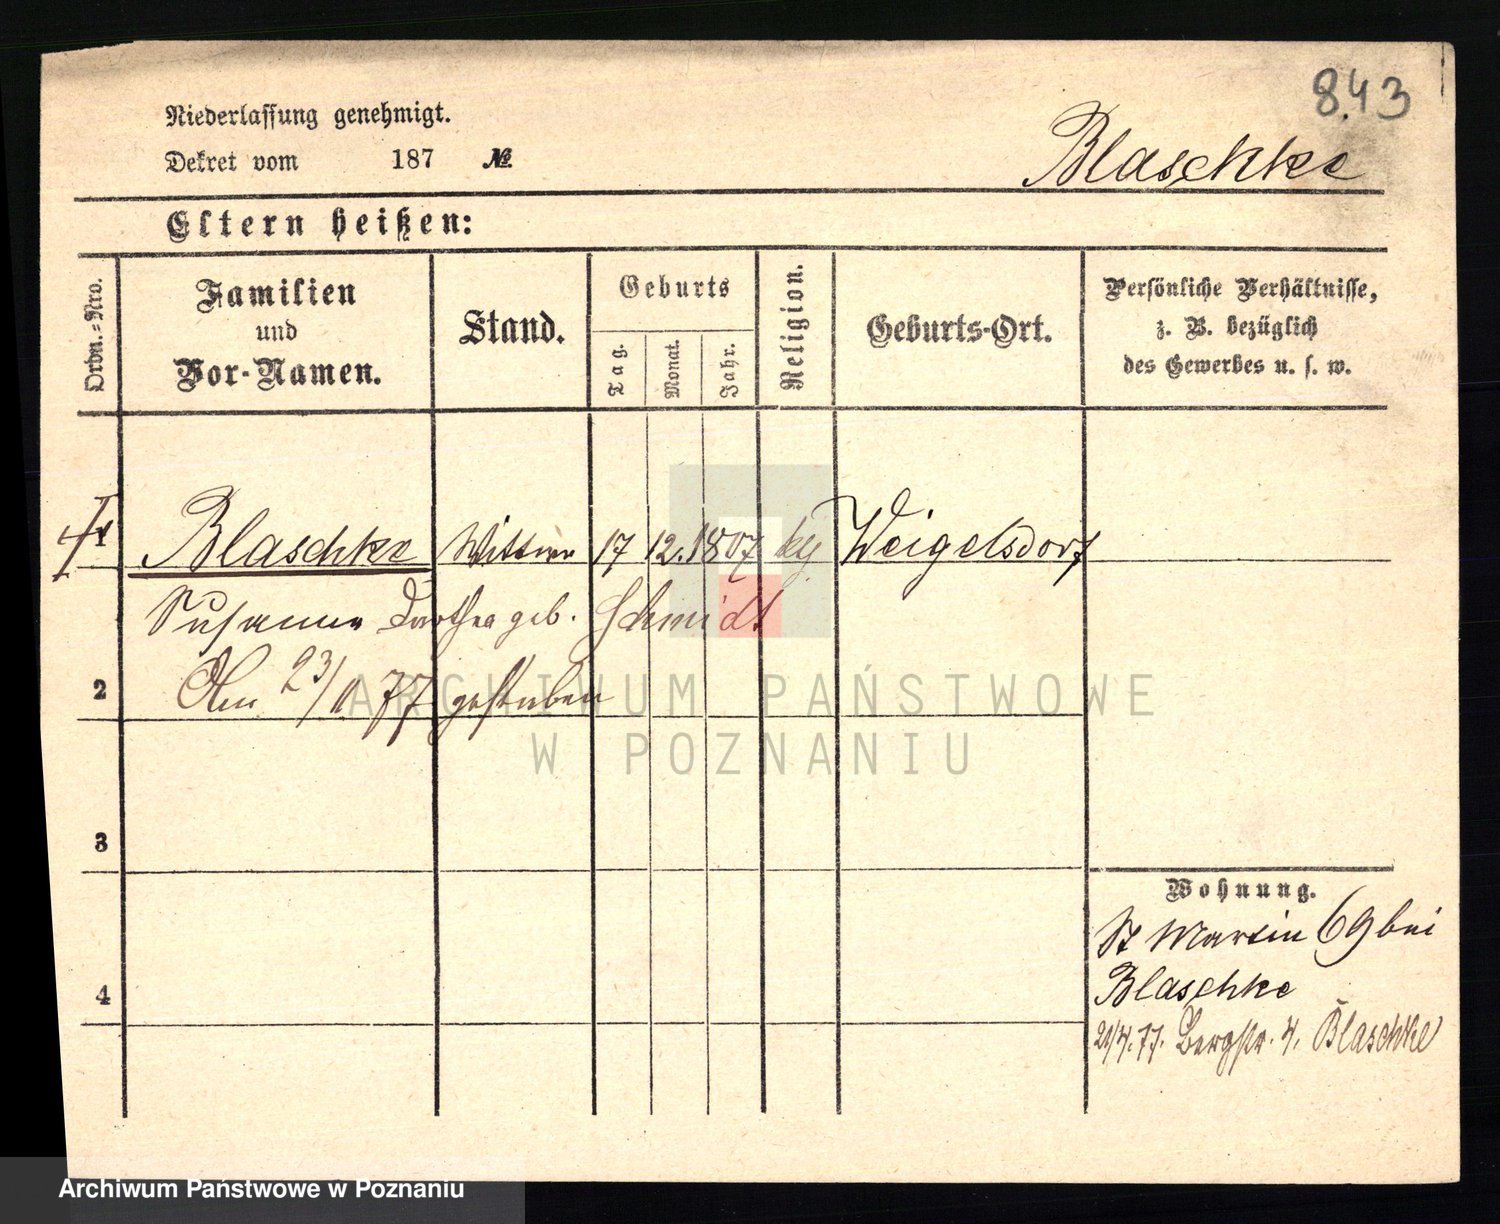 8.43
Niederlassung genehmigt.
Dekret vom 187 №
Blaschke
Eltern heißen:
Ordn.-Nro.
Familien
und
Vor-Namen.
Stand.
Geburts
Tag.
Monat.
Jahr.
Religion.
Geburts-Ort.
Persönliche Verhältnisse,
z. B. bezüglich
des Gewerbes u. s. w.
1 Blaschke Wittwe 17 12. 1807 Weigelsdorf
Susanna Dorothea geb. Schmidt
2 Am 23/ 77 gestorben
ARCHIWUM PAŃSTWOWE
W POZNANIU
3
4
Wohnung.
St Martin 69 bei
Blaschke
21/4.77. Bergstr. 4. Blaschke
Archiwum Państwowe w Poznaniu